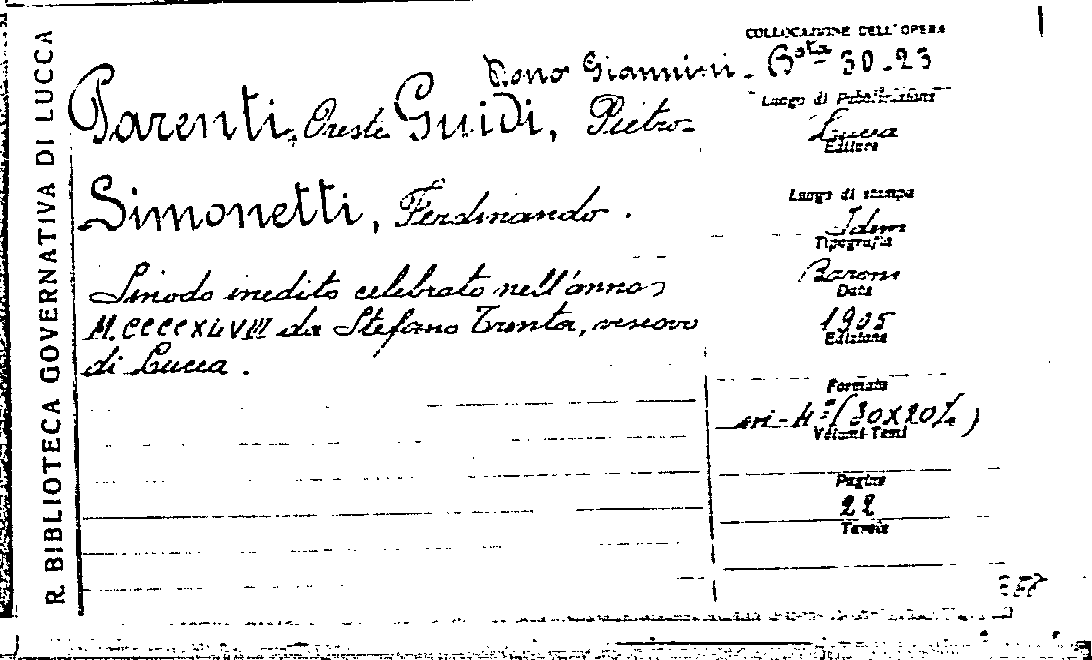 R. BIBLIOTECA GOVERNATIVA DI LUCCA
COLLOCAZIONE DELL'OPERA
Dono Giannini. Bta 30-23
Parenti, Oreste Guidi, Pietro-
Simonetti, Ferdinando.
Sinodo inedito celebrato nell'anno
M.CCCCXLVIII da Stefano Trenta, vescovo
di Lucca.
Luogo di Pubblicazione
Lucca
Editore
Luogo di stampa
Idem
Tipografia
Baroni
Data
1905
Edizione
Formato
in-4º (30x20%)
Volumi-Tomi
Pagine
22
Tavole